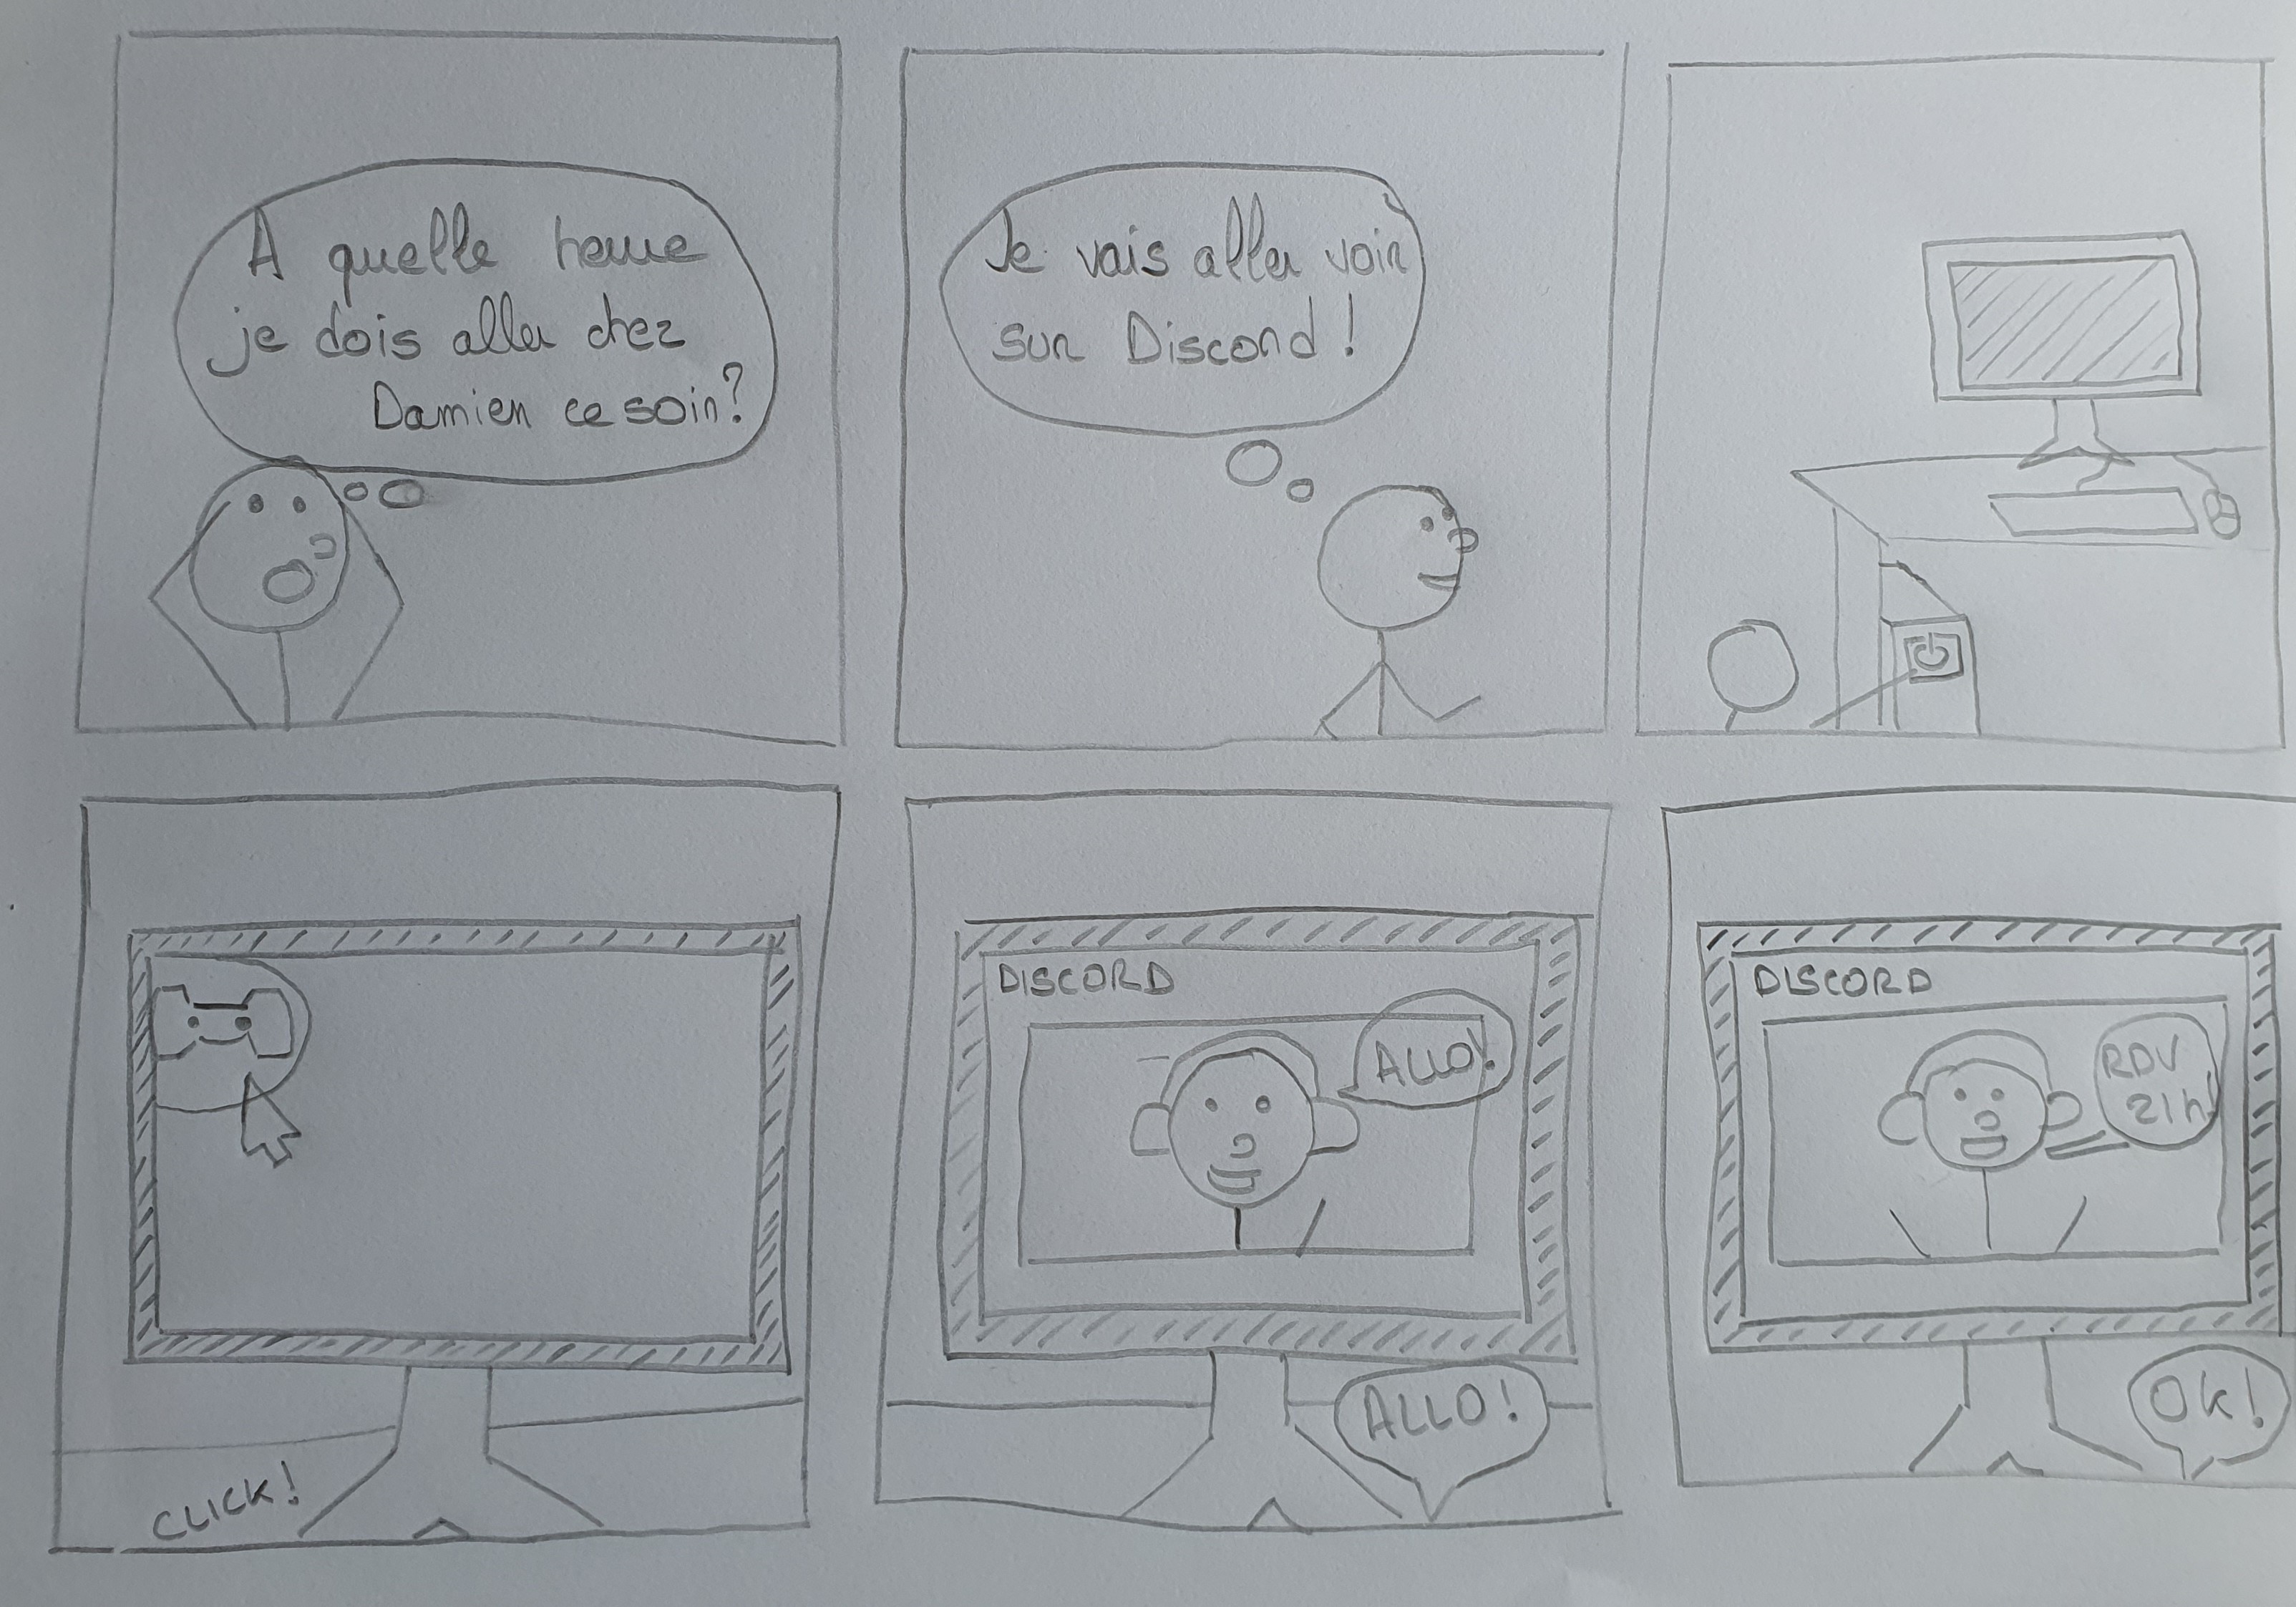 A quelle heure
je dois aller chez
Damien ce soir?
Je vais aller voir
sur Discord!
CLICK!
DISCORD
ALLO!
ALLO!
DISCORD
RDV
21h!
OK!